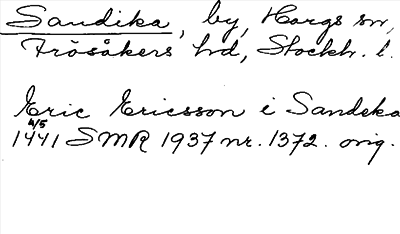 Sandika, by, Hargs sn,
Frösåkers hd, Stockh. l.
Eric Ericsson i Sandeka
4/5
1441 SMR 1937 nr. 1372. orig.